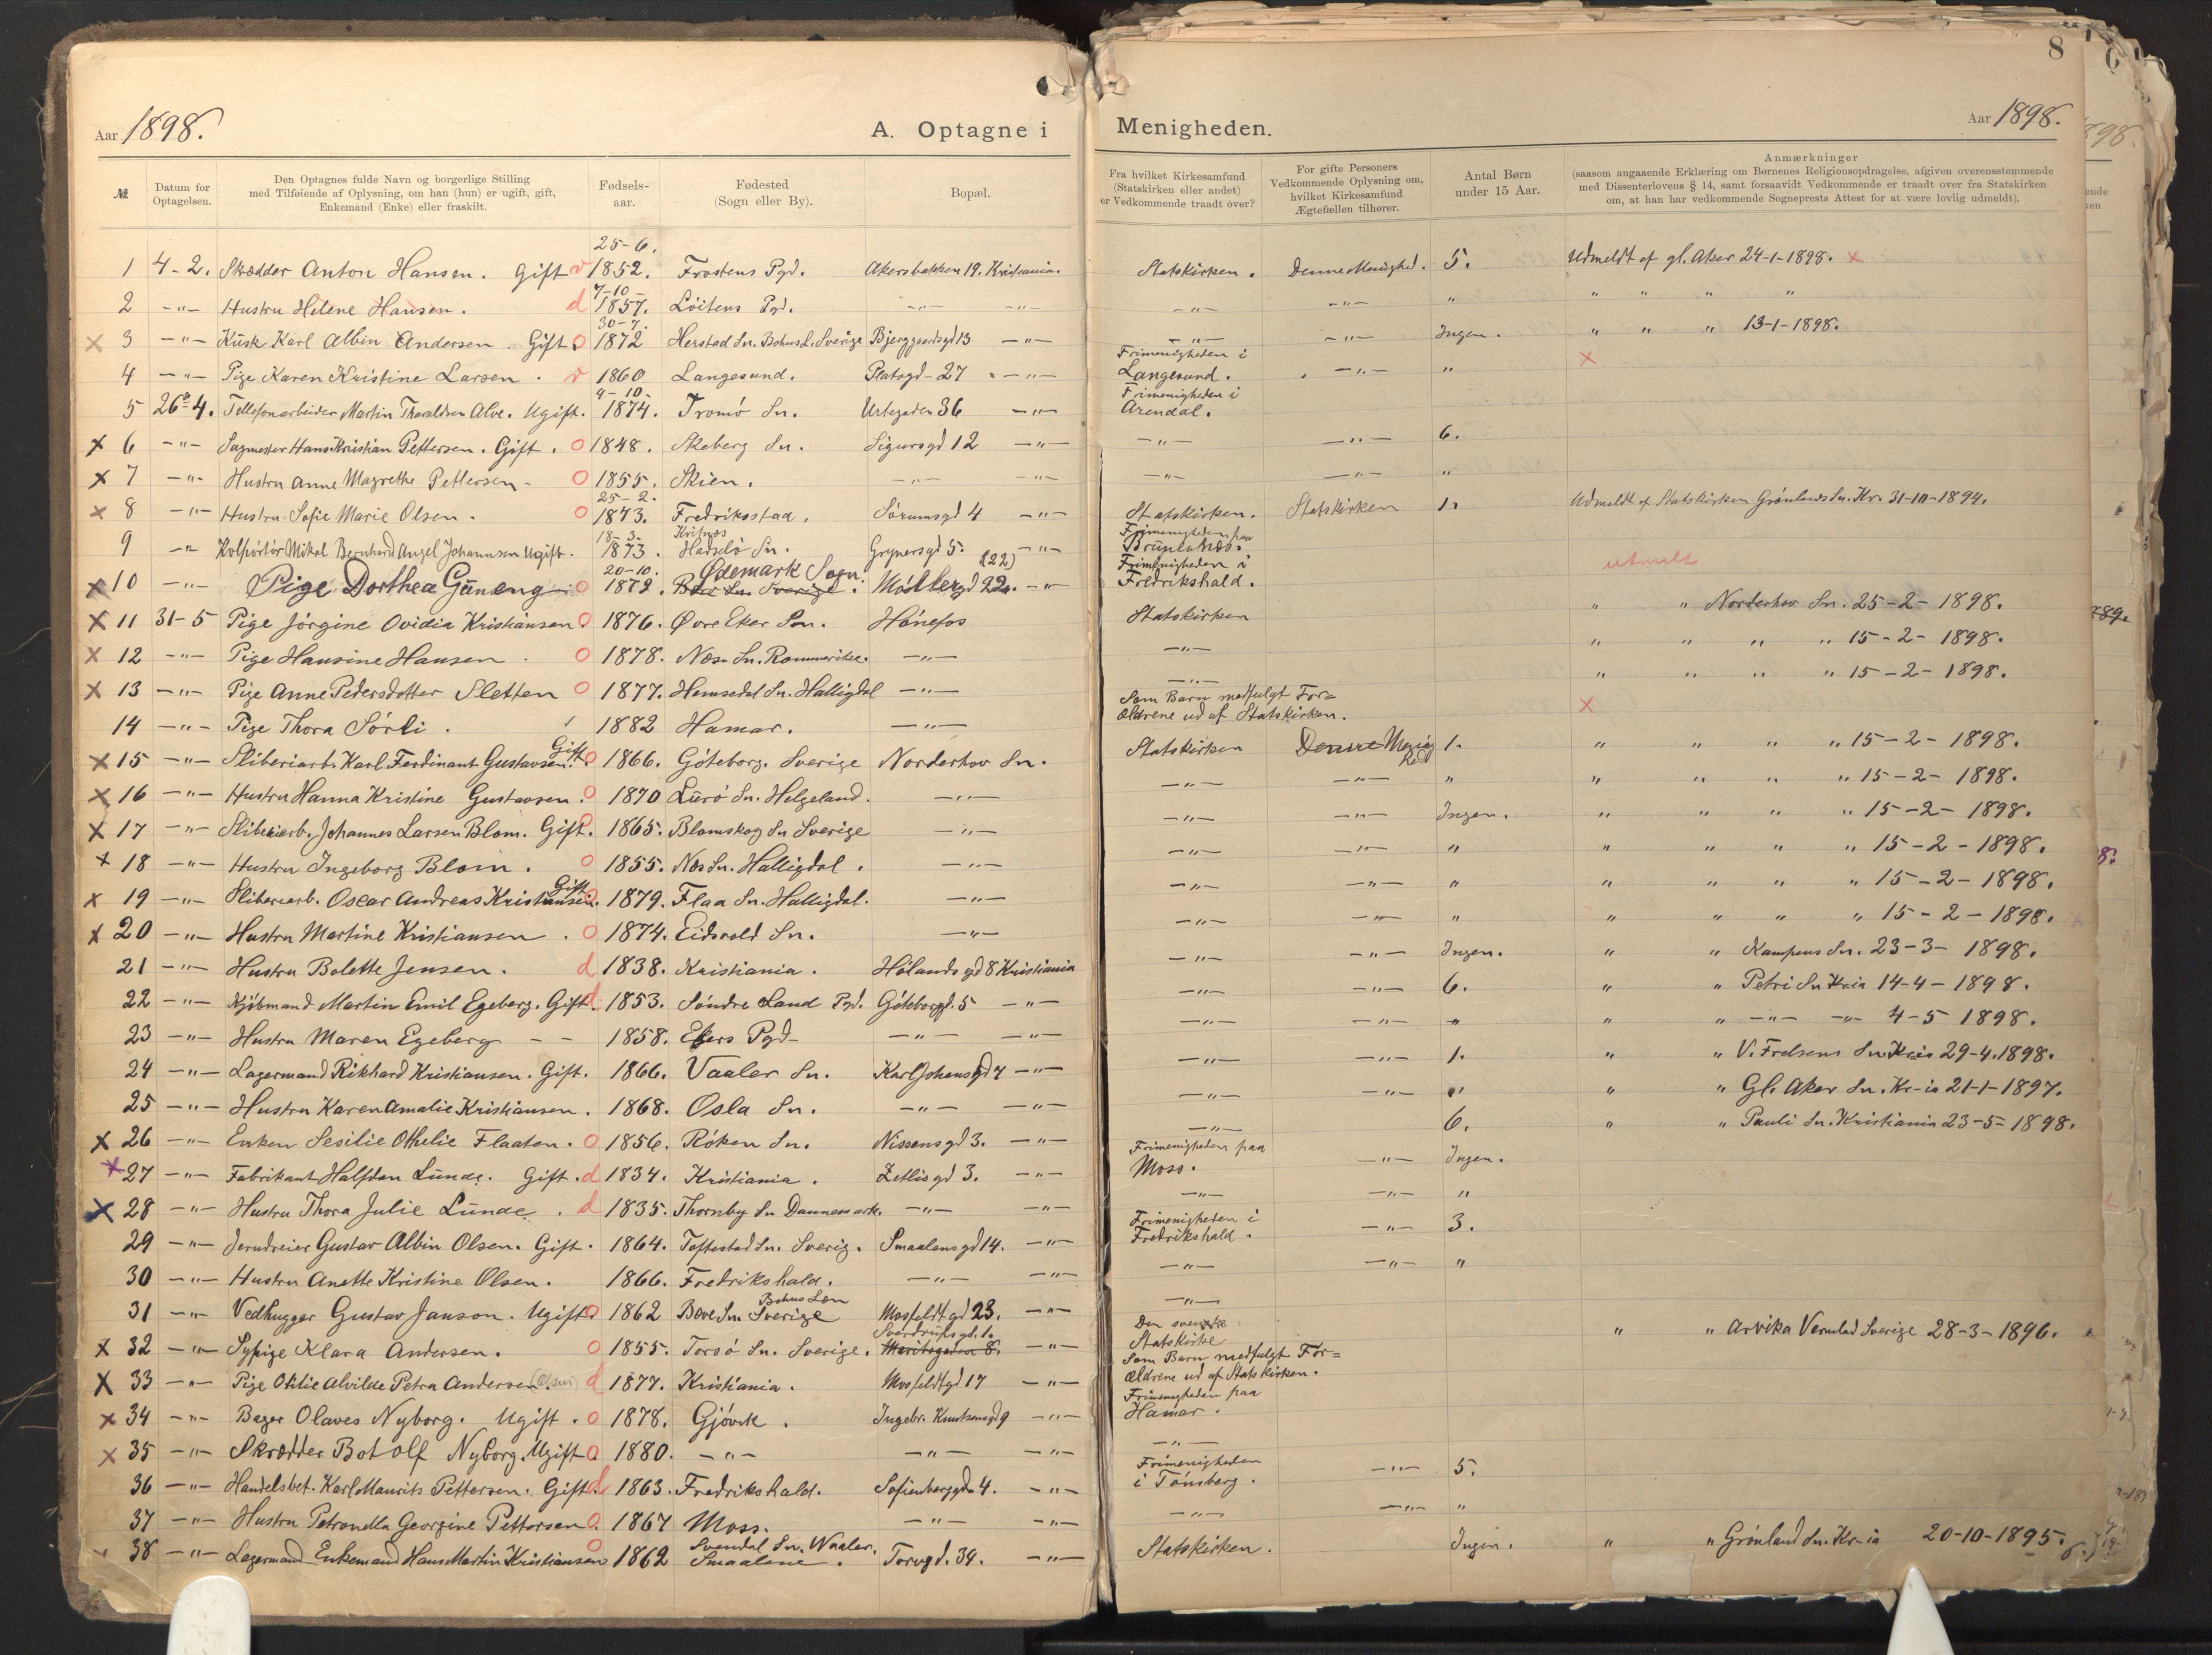 8
Aar 1898. A. Optagne i Menigheden. Aar 1898.
№ | Datum for Optagelsen. | Den Optagnes fulde Navn og borgerlige Stilling med Tilføiende af Oplysning, om han (hun) er ugift, gift, Enkemand (Enke) eller fraskilt. | Fødsels-aar. | Fødested (Sogn eller By). | Bopæl. | Fra hvilket Kirkesamfund (Statskirken eller andet) er Vedkommende traadt over? | For gifte Personers Vedkommende Oplysning om, hvilket Kirkesamfund Ægtefællen tilhører. | Antal Børn under 15 Aar. | Anmærkninger (saasom angaaende Erklæring om Børnenes Religionsopdragelse, afgiven overensstemmende med Dissenterlovens § 14, samt forsaavidt Vedkommende er traadt over fra Statskirken om, at han har vedkommende Sogneprests Attest for at være lovlig udmeldt).
1 4-2. Skrædder Anton Hansen. Gift v 25-6. 1852. Frostens Pgd. Akersbakken 19. Kristiania. Statskirken. Denne Menighed. 5. Udmeldt af gl. Aker 24-1-1898. x
2 -"- Hustru Helene Hansen. d 7-10- 1857. Löitens Pgd. -"- -"- -"- -"- " " " " "
x 3 -"- Kusk Karl Albin Andersen. Gift. o 30-7. 1872 Herstad Sn. Bohus L. Sverige Bjerggaardsgd 13 -"- -"- -"- Ingen. " " " 13-1-1898.
4 -"- Pige Karen Kristine Larsen. v 1860 Langesund. Platogd-27 -"- Frimenigheden i Langesund. -"- " x
5 26-4. Tellefonarbeider Martin Tharaldsen Alve. Ugift. 4-10- 1874. Tromö Sn. Urtegaden 36 -"- Frimenigheden i Arendal.
x 6 -"- Sagmester Hans Kristian Pettersen. Gift. o 1848. Skeberg Sn. Sigursgd 12 -"- -"- -"- 6.
x 7 -"- Hustru Anne Magrethe Pettersen- o 1855. Skien. -"- -"- -"- -"- "
x 8 -"- Hustru Sofie Marie Olsen. o 25-2. 1873. Fredriksstad. Sörumsgd 4 -"- Statskirken. Statskirken 1. Udmeldt af Statskirken Grönlands Sn. Kr. 31-10-1894.
9 -"- Kolportör Mikal Bernhard Angel Johannsen Ugift. 18-3- 1873. Hadselö Sn. Grynersgd 5. -"- Frimenigheden paa
x 10 -"- Pige Dorthea Güneng o 20-10. 1872. Ödemark Sogn. Möllergd 22. (22) -"- Frimenigheden i Fredrikshald. utmelt
x 11 31-5 Pige Jörgine Ovidia Kristiansen o 1876. Övre Eker Sn. Hönefos Statskirken " " Norderhov Sn. 25-2-1898.
x 12 -"- Pige Hansine Hansen. o 1878. Næs Sn. Rommerike. -"- -"- " " " " 15-2-1898.
x 13 -"- Pige Anne Pedersdotter Sletten o 1877. Hemsedal Sn. Halligdal -"- -"- " " " " 15-2-1898.
14 -"- Pige Thora Sörli. 1882 Hamar. -"- Som Barn medfulgt For=ældrene ud af Statskirken. x
x 15 -"- Sliberiarb. Karl Ferdinant Gustavsen. Gift. o 1866. Göteborg. Sverige Norderhov Sn. Statskirken Denne Menighed 1. " " " " 15-2-1898.
x 16 -"- Hustru Hanna Kristine Gustavsen. o 1870 Lurö Sn. Helgeland. -"- -"- -"- " " " " " 15-2-1898.
x 17 -"- Sliberiarb. Johannes Larsen Blom. Gift. o 1865. Blomskog Sn Sverige -"- -"- -"- Ingen. " " " " 15-2-1898.
x 18 -"- Hustru Ingeborg Blom. o 1855. Næs Sn. Halligdal. -"- -"- -"- " " " " " 15-2-1898.
x 19 -"- Sliberiarb. Oscar Andreas Kristiansen. Gift. o 1879. Flaa Sn. Halligdal. -"- -"- -"- " " " " " 15-2-1898.
x 20 -"- Hustru Martine Kristiansen. o 1874. Eidsvold Sn. -"- -"- -"- " " " " " 15-2-1898.
21 -"- Hustru Bolette Jensen. d 1838. Kristiania. Hölandsgd 8 Kristiania -"- -"- Ingen. " " Kampens Sn. 23-3-1898.
22 -"- Kjöbmand Martin Emil Egeberg. Gift. d 1853. Söndre Land Pgd. Göteborggd. 5 -"- -"- -"- 6. " " Petri Sn Kria 14-4-1898.
23 -"- Hustru Maren Egeberg - - 1858. Ekers Pgd- -"- -"- -"- -"- " " " -"- -"- 4-5 1898.
24 -"- Lagermand Rikhard Kristiansen. Gift. 1866. Vaaler Sn. Karl Johansgd 7 -"- -"- -"- 1. " " V. Frelsens Sn. Kria 29-4.1898.
25 -"- Hustru Karen Amalie Kristiansen. 1868. Osla Sn. -"- -"- -"- -"- " " " Gl. Aker Sn. Kr-ia 21-1-1897.
x 26 -"- Enken Sesilie Othelie Flaaten. o 1856. Röken Sn. Nissensgd 3. -"- -"- 6. " " Pauli Sn. Kristiania 23-5-1898.
x 27 -"- Fabrikant Halfdan Lunde. Gift. d 1834. Kristiania. Zetlisgd 3. -"- Frimenigheden paa Moss. -"- Ingen.
x 28 -"- Hustru Thora Julie Lunde. d 1835. Thornby Sn Dannemark. -"- -"- -"- -"- "
29 -"- Jerndreier Gustav Albin Olsen. Gift. 1864. Toftestad Sn. Sverig. Smaalensgd 14. -"- Frimenigheden i Fredrikshald. -"- 3.
30 -"- Hustru Anette Kristine Olsen. 1866. Fredrikshald. -"- -"- -"- -"- "
31 -"- Vedhugger Gustav Janson. Ugift. o 1862 Bave Sn. Sverige Bohus Len Mosfeldtgd 23. -"- -"-
x 32 -"- Sypige Klara Andersen. o 1855. Torsö Sn. Sverige. Sverdrupsgd. 1. -"- Den svenske Statskirke " " Arvika Vermlad Sverige 28-3-1896.
x 33 -"- Pige Otilie Alvilde Petra Andersen (Olsen) d 1877. Kristiania. Mosfeldtgd 17 -"- Som Barn medfulgt For=ældrene ud af Statskirken.
x 34 -"- Bager Olaves Nyborg. Ugift. o 1878. Gjövik. Ingebr. Knutsensgd 9 -"- Frimenigheden paa Hamar.
x 35 -"- Skrædder Botolf Nyborg. Ugift. o 1880. -"- -"- -"- -"-
36 -"- Handelsbet. Karl Maurits Pettersen. Gift. d 1863. Fredrikshald. Sofienberggd. 4. -"- Frimenigheden i Tönsberg. -"- 5.
37 -"- Hustru Petronella Georgine Pettersen o. 1867 Moss. -"- -"- -"- -"- "
38 -"- Lagermand Enkemand Hans Martin Kristiansen o 1862 Svendal Sn. Waaler. Smaalene. Torvgd. 34. -"- Statskirken. Ingen. " " Grönland Sn. Kr-ia 20-10-1895.